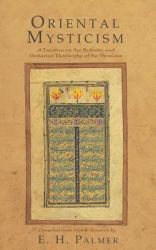 ORIENTAL
MYSTICISM
A Treatise on the Sufiistic and
Unitarian Theosophy of the Persians
Compiled from Native Sources by
E. H. PALMER